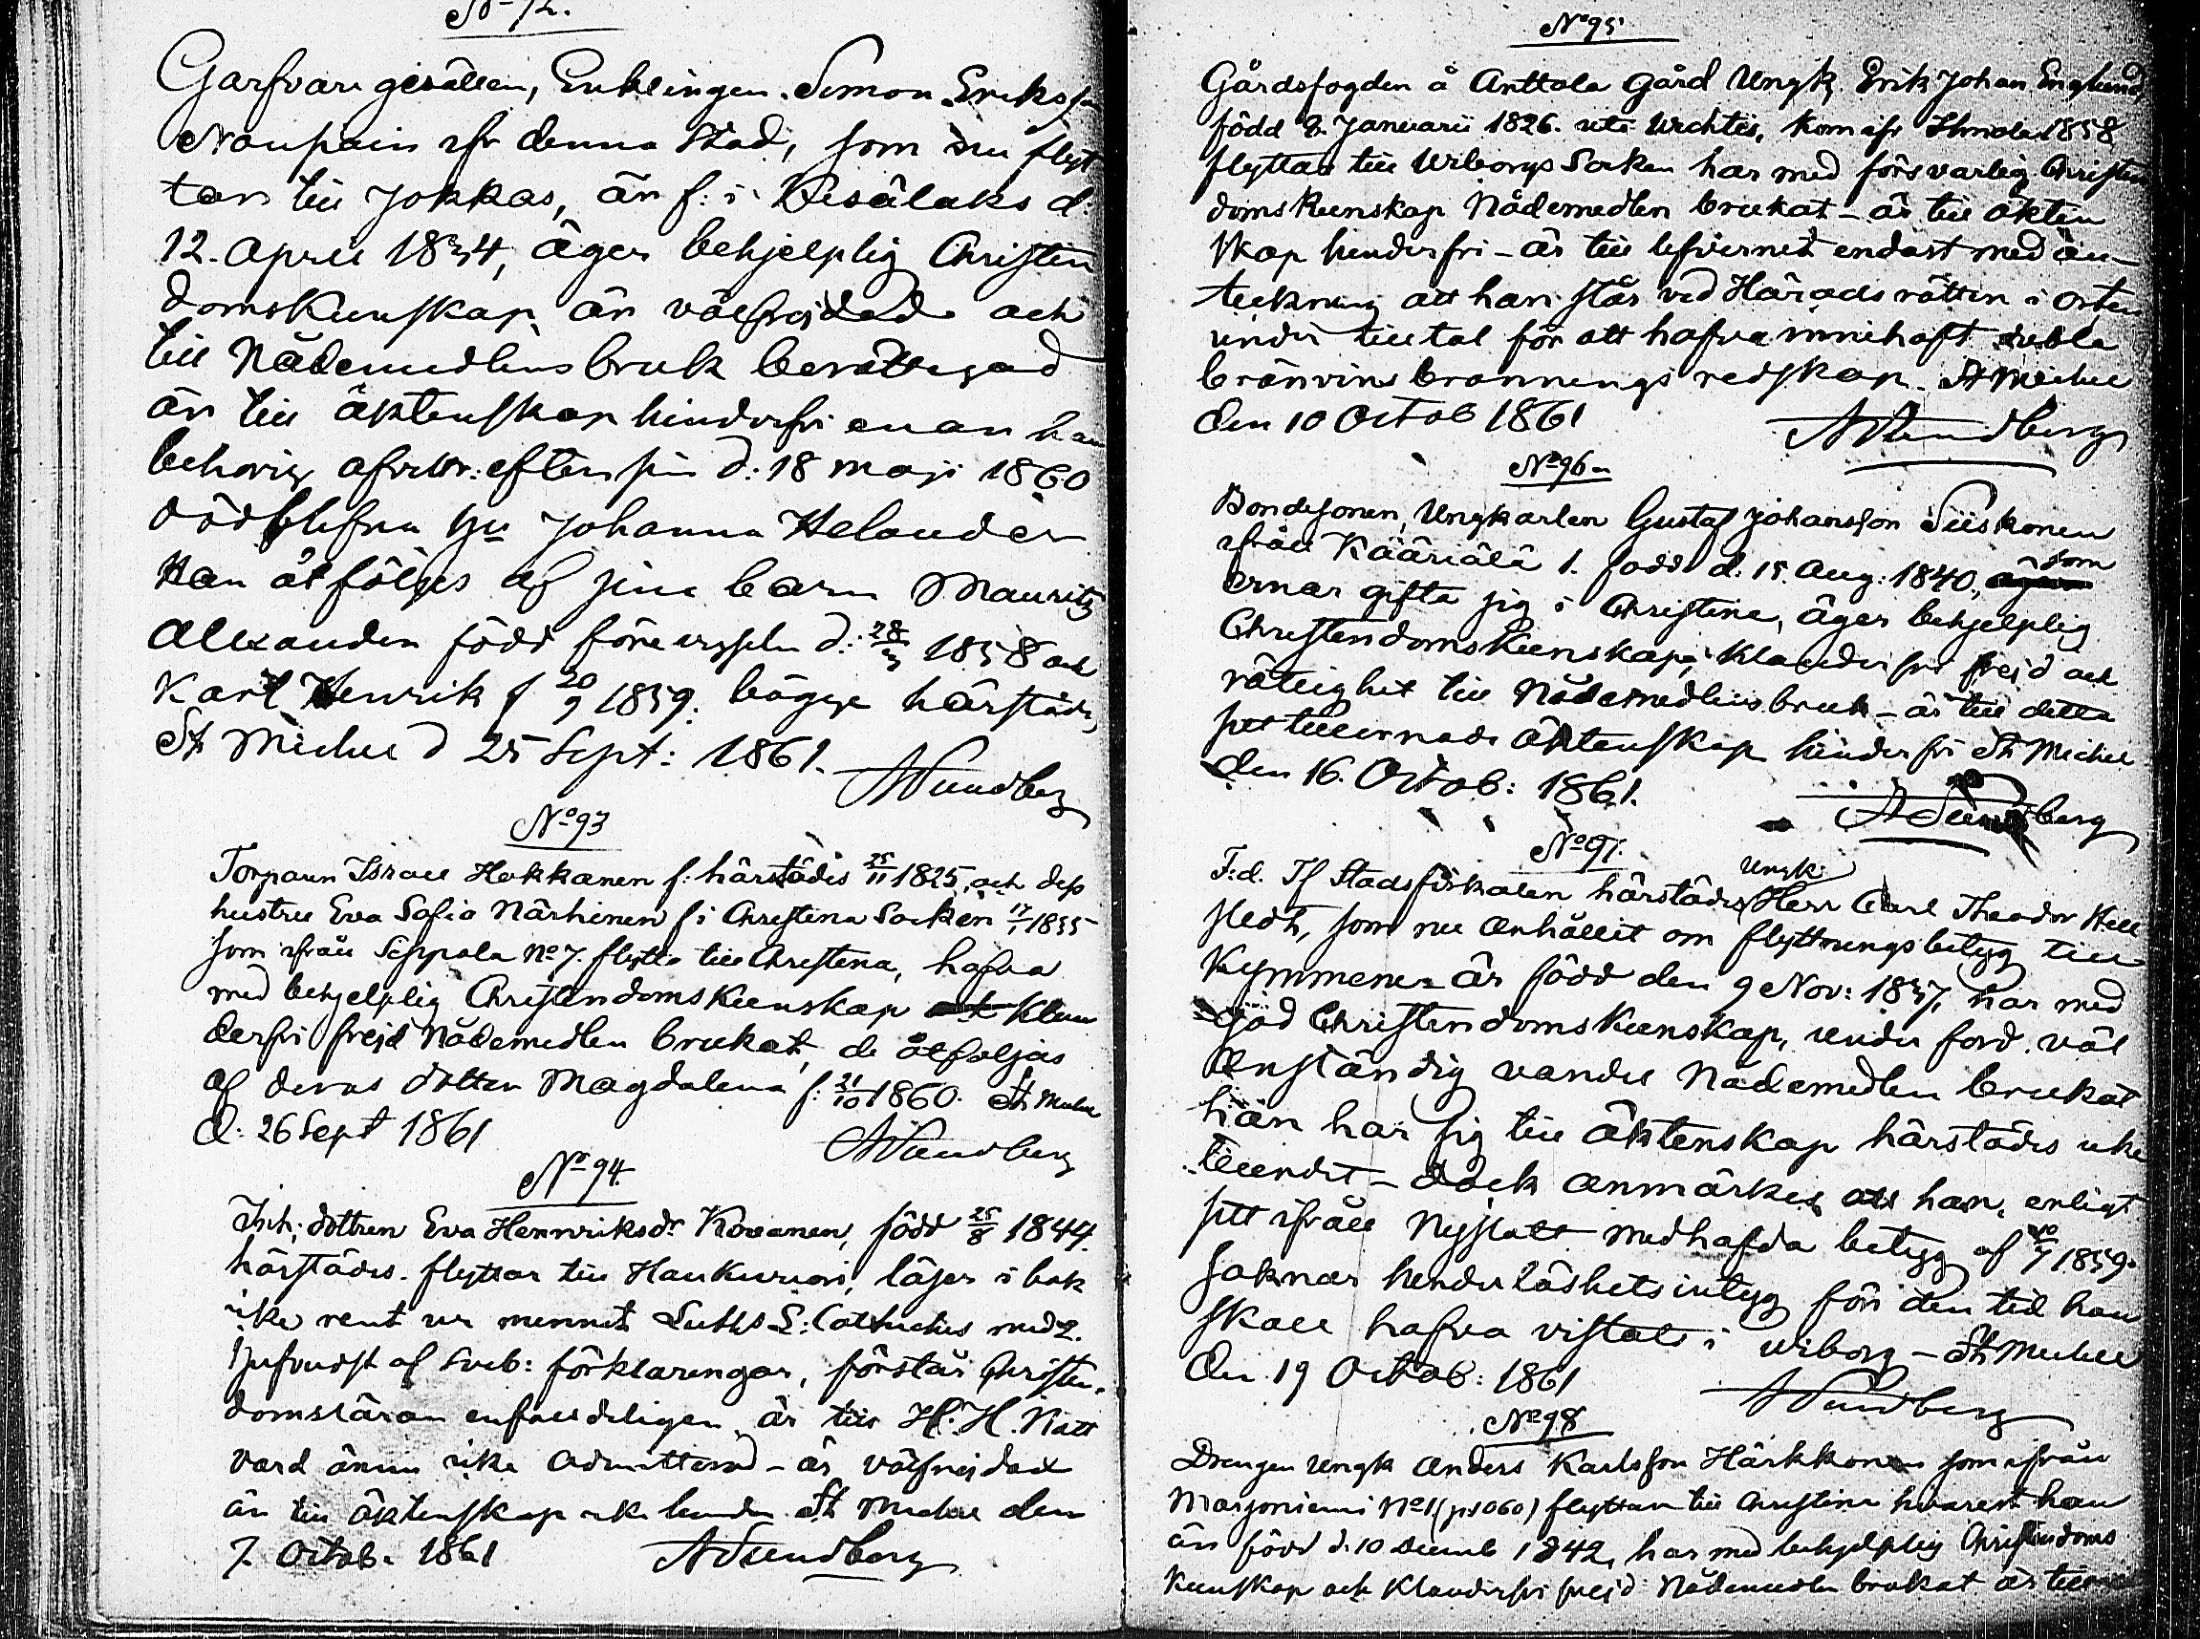 Garfvaregesällen, Enklingen Simon Eriksson
Noupain ifr denna Stad, som nu flyt
tar till Jokkas, är f: i Kesälaks d:
12. April 1834, äger behjelplig Christen
domskunskap är välfrejdad och
till Nådemedlens bruk berättigad
är till äktenskap hinderfri enär han
behörig afvittr: efter sin d: 18 Maji 1860
dödblefna hu Johanna Helander
Han åtföljes af sina barn Mauritz
Alexander född före d: 28/3 1858 och
Karl Henrik f 20/9 1859. bägge härstädes,
St Michel d 25 Sept: 1861.
A Sundberg
No 93
Torparen Israel Hokkanen f: härstädes 25/11 1825, och dess
hustru Eva Sofia Närhinen f i Christina Socken 17/1 1835
som ifrån Seppola No 7. flytta till Christina, hafva
med behjelplig Christendomskunskap och klan
derfri frejd Nådemedlen brukat, de åtföljas
af deras dotter Magdalena f: 21/10 1860. St Michel
d: 26 Sept 1861
A Sundberg
No 94.
Inh: dottren Eva Hennriksdr Kovanen, född 25/8 1844.
härstädes. flyttar till Haukivuori, läser i bok
icke rent ur minnet Luth S: Catheches med 2.
hufvudst af Sveb: förklaringar, förstår Christen,
domsläran enfaldeligen är till H. H. Natt
vard ännu icke admitterad - är välfrejdad
är till äktenskap icke hinder St Michel den
7. Octob. 1861 A Sundberg
No 95
Gårdsfogden å Anttola Gård Ungk. Erik Johan Englund,
född 8. Januarii 1826. uti Wichtis, kom ifr 1858
flyttar till Wiborgs Socken har med försvarlig Christen
domskunskap Nådemedlen brukat - är till äkten
skap hinderfri - är till lefvernet endast med an-
teckning att han står vid Häradsrätten i Orten
under tilltal för att hafva innehaft dubla
bränvins brännings redskap. St Michel
den 10 Octob 1861
A Sundberg
No 96
Bondesonen, Ungkarlen Gustaf Johansson Siiskonen
ifrån Kääriälä 1. född d: 15. Aug: 1840, som
ernar gifta sig i Christina, äger behjelplig
Christendomskunskap, klanderfri frejd och
rättighet till Nådemedlens bruk - är till detta
sitt tillernade äktenskap hinderfri St Michel
den 16. Octob: 1861.
A Sundberg
No 97.
Ungk:
F:d. Tf Stadsfiskalen härstädes Herr Carl Theodor Hell
stedt, som nu anhållit om flyttningsbetyg till
Kymmene - är född den 9 Nov: 1837, har med
god Christendomskunskap, under ford. väl
anständig vandel Nådemedlen brukat
han har sig till äktenskap härstädes icke
- dock anmärkes att han, enligt
sitt ifrån Nyslott medhafda betyg af 10/7 1859.
saknar hinderlöshetsintyg för den tid han
skall hafva vistats i Wiborg - St Michel
den 19 Octob: 1861
A Sundberg
No 98
Drengen Ungk Anders Karlsson Härkkonen som ifrån
Marjoniemi No 1 (p. 1060) flyttar till Christina hvarest han
är född d. 10 Decemb 1842, har med behjelplig Christendoms
kunskap och klanderfri frejd Nådemedlen brukat är till